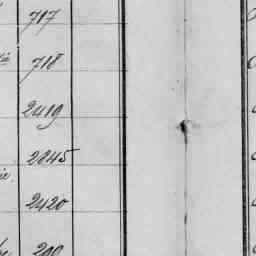 717
718
2419
2845
2420
290